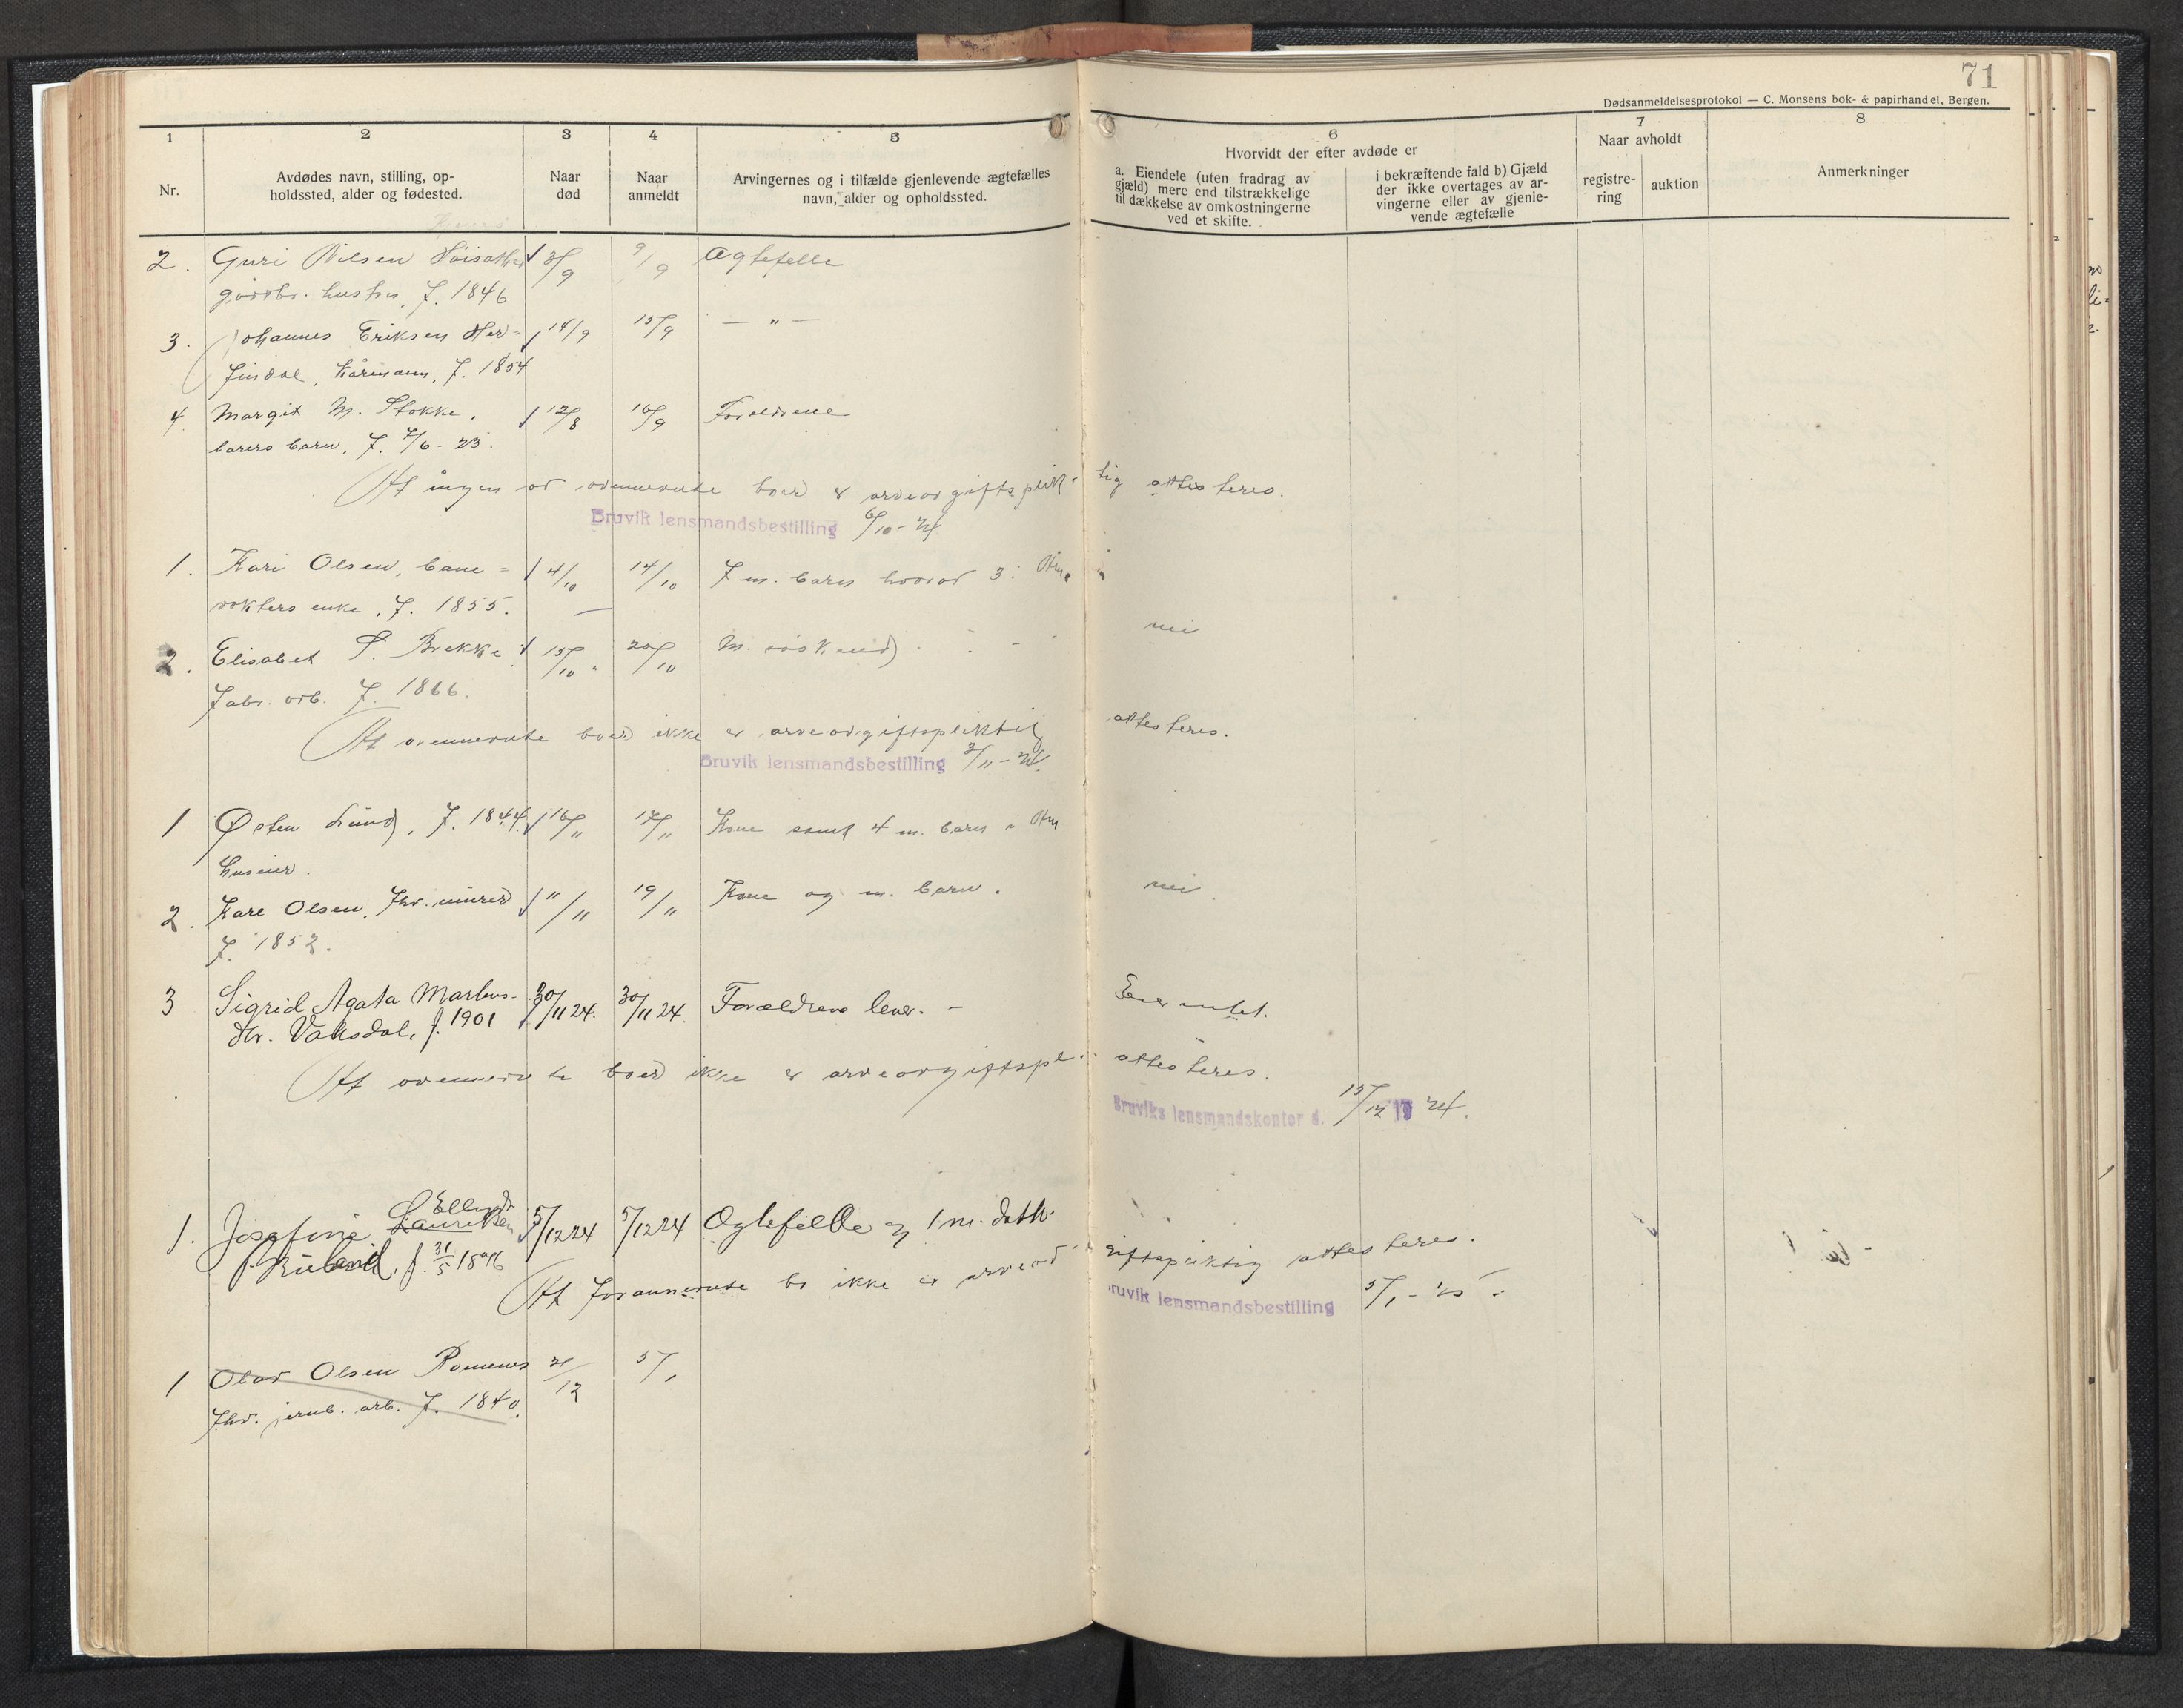 71
Dødsanmeldelsesprotokol — C. Monsens bok- & papirhandel, Bergen.
1 2 3 4 5 6 7 8
Nr.
Avdødes navn, stilling, op-
holdssted, alder og fødested.
Naar
død
Naar
anmeldt
Arvingernes og i tilfælde gjenlevende ægtefælles
navn, alder og opholdssted.
Hvorvidt der efter avdøde er
a. Eiendele (uten fradrag av
gjæld) mere end tilstrækkelige
til dækkelse av omkostningerne
ved et skifte.
i bekræftende fald b) Gjæld
der ikke overtages av ar-
vingerne eller av gjenle-
vende ægtefælle
Naar avholdt
registre-
ring
auktion
Anmerkninger
2. Guri Nilsen 3/9 9/9 Ægtefelle
gårdbr. hustru, f. 1846
3. Johannes Eriksen Her- 14/9 15/9 — " —
findal, kårmann, f. 1854
4. Margit M. Stokke, 12/8 16/9 Foreldrene
barn, f. 7/6 - 23.
At ingen av ovennevnte boer er arveavgiftsplik- tig attesteres.
Bruvik lensmandsbestilling 6/10 - 24
1. Kari Olsen, bane- 4/10 14/10 7 m. barn hvorav 3 i Am.
vokters enke, f. 1855.
2. Elisabet S. Brekke 15/10 20/10 M. søskend nei
fabr. arb. f. 1866.
At ovennevnte boer ikke er arveavgiftspliktig attesteres.
Bruvik lensmandsbestilling 3/11 - 24
1 Østen Lund, f. 1844. 16/11 17/11 Kone samt 4 m. barn i Am
huseier.
2. Kare Olsen, fhv. murer 11/11 19/11 Kone og m. barn. nei.
f. 1852.
3 Sigrid Agata Martins- 30/11 24. 30/11 24. Forældrene lever. —
dtr. Vaksdal, f. 1901
At ovennevnte boer ikke er arveavgiftspl. attesteres.
Bruviks lensmandskontor d. 15/12 19 24.
Ellingsdtr.
1. Josefine Lauritsen 5/12 24 5/12 24 Ægtefelle og 1 m. datter
f. 31/5 1846
At forannevnte bo ikke er arveav- giftspliktig attesteres.
Bruvik lensmandsbestilling 5/1 - 25
1 Olav Olsen Romenes 21/12 5/1
fhv. jernb. arb. f. 1840.